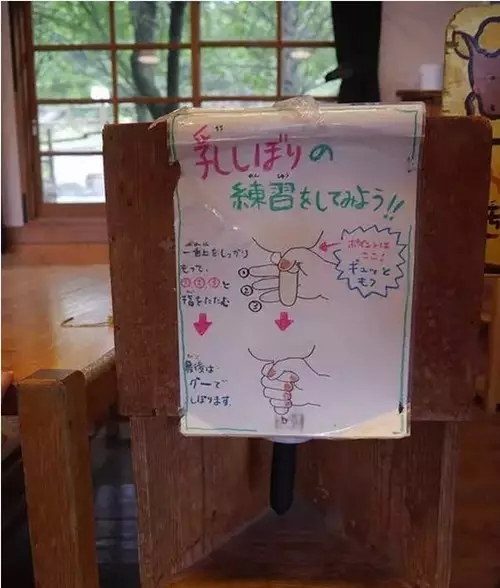 乳しぼりの
練習をしてみよう!!
一番上をしっかり
もって、
①②③と
指をたたむ
①
②
③
ポイントは
ここ!
ギュッと
もつ
最後は
グーで
しぼります。